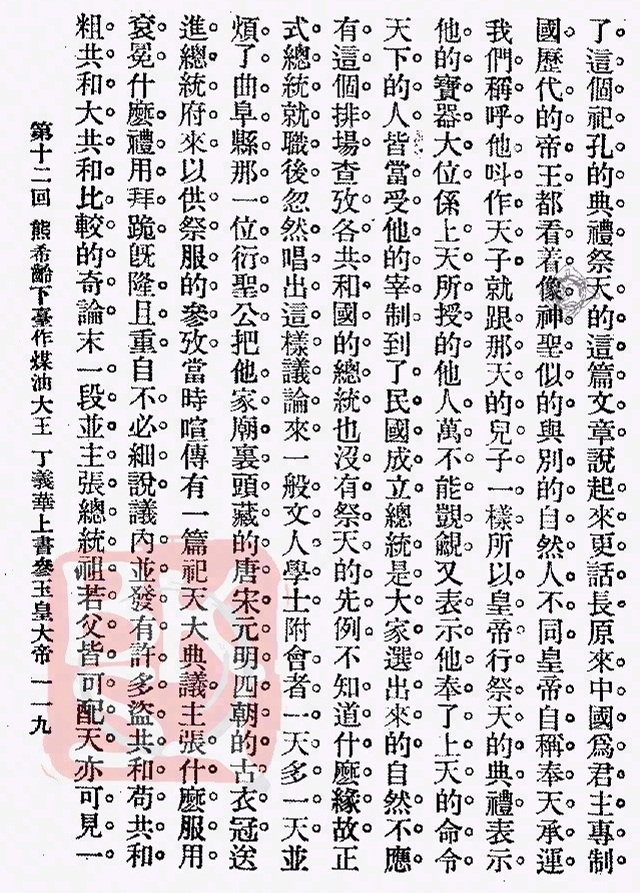 了這個祀孔的典禮祭天的這篇文章說起來更話長原來中國爲君主專制
國歷代的帝王都看着像神聖似的與別的自然人不同皇帝自稱奉天承運
我們稱呼他呌作天子就跟那天的兒子一樣所以皇帝行祭天的典禮表示
他的寶器大位係上天所授的他人萬不能覬覦又表示他奉了上天的命令
天下的人皆當受他的宰制到了民國成立總統是大家選出來的自然不應
有這個排場查攷各共和國的總統也沒有祭天的先例不知道什麽緣故正
式總統就職後忽然唱出這樣議論來一般文人學士附會者一天多一天並
煩了曲阜縣那一位衍聖公把他家廟裏頭藏的唐宋元明四朝的古衣冠送
進總統府來以供祭服的參攷當時喧傳有一篇祀天大典議主張什麽服用
袞冕什麽禮用拜跪旣隆且重自不必細說議內並發有許多盜共和苟共和
粗共和大共和比較的奇論末一段並主張總統祖若父皆可配天亦可見一
第十二回 熊希齡下臺作煤油大王 丁義華上書參玉皇大帝 一一九